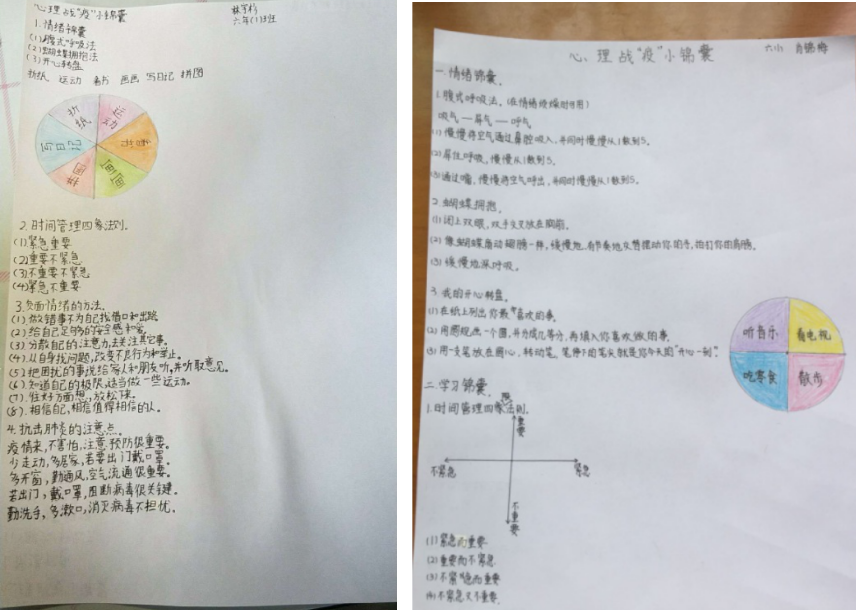 心理战"疫"小锦囊
六年(1)班
1.情绪锦囊
(1)腹式呼吸法
(2)蝴蝶拥抱法
(3)开心转盘
折纸 运动 看书 画画 写日记 拼图
折纸
运动
看书
画画
拼图
写日记
2.时间管理四象法则.
(1)紧急重要
(2)重要不紧急
(3)不重要不紧急
(4)紧急不重要
3.负面情绪的方法.
(1)做错事不为自己找借口和出路
(2)给自己足够的安全感和爱.
(3)分散自己的注意力,去关注其它事.
(4)从自身找问题,改变不良行为和举止。
(5)把困扰的事说给家人和朋友听,并听取意见。
(6)知道自己的极限,适当做一些运动。
(7).往好方面想,放松下来。
(8).相信自己,相信值得相信的人。
4.抗击肺炎的注意点.
疫情来,不害怕,注意预防很重要。
少走动,多居家,若要出门戴口罩。
多开窗,勤通风,空气流通很重要。
若出门,戴口罩,阻断病毒很关键。
勤洗手,多漱口,消灭病毒不担忧。
心理战"疫"小锦囊
一.情绪锦囊.
1.腹式呼吸法.(在情绪烦躁时作用)
吸气—屏气—呼气
(1)慢慢将空气通过鼻腔吸入,并同时慢慢从1数到5。
(2)屏住呼吸,慢慢从1数到5.
(3)通过嘴,慢慢将空气呼出,并同时慢慢从1数到5.
2.蝴蝶拥抱.
(1)闭上双眼,双手交叉放在胸前.
(2)像蝴蝶扇动翅膀一样,缓慢地、有节奏地交替摆动你的手,拍打你的肩膀。
(3)缓慢地深呼吸。
3.我的开心转盘.
(1)在纸上列出你最喜欢的事.
(2)用圆规画一个圆,并分成几等分,再填入你喜欢做的事.
(3)用一支笔放在圆心,转动笔。笔停下的笔尖就是你今天的"开心一刻"?
听音乐
看电视
吃零食
散步
二.学习锦囊.
1.时间管理四象法则.
重要
不紧急
紧急
不重要
(1)紧急而重要
(2)重要而不紧急
(3)不紧急而重要
(4)不紧急又不重要.